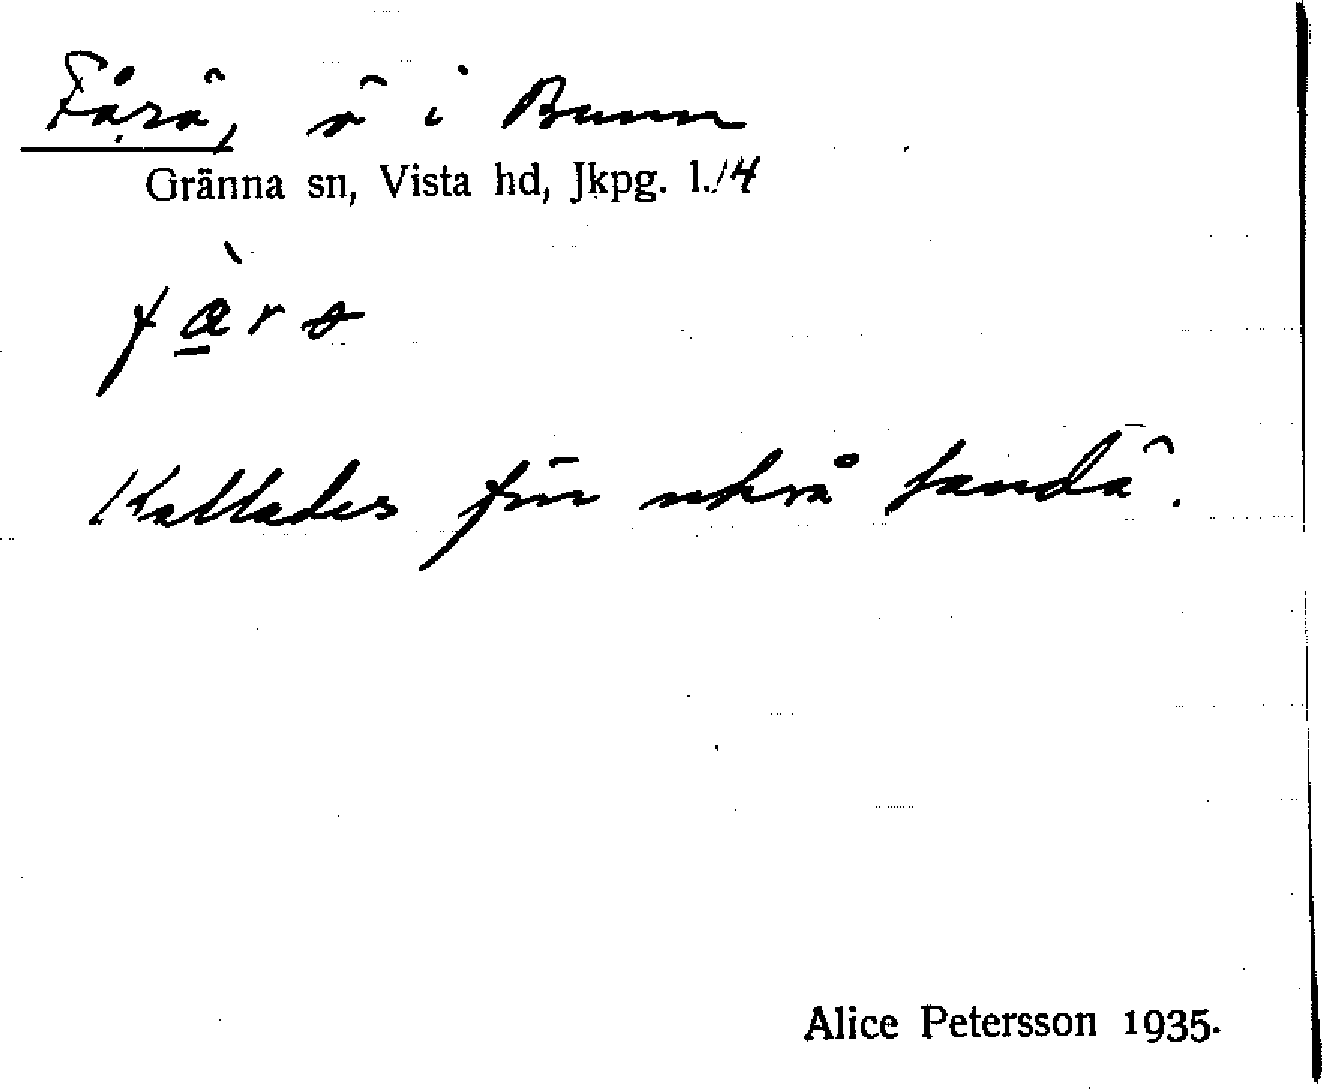 Fårö, ö i Bunn
Gränna sn, Vista hd, Jkpg. l./4
Kallades för också Sandö.
Alice Petersson 1935.